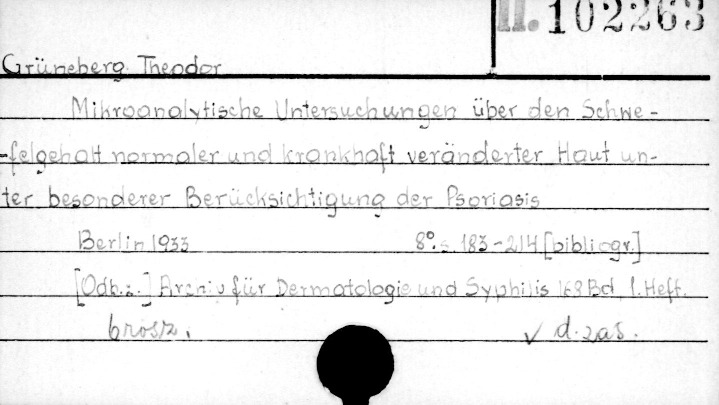 II. 102263
Grüneberg Theodor
Mikroanalytische Untersuchungen über den Schwe-
-felgehalt normaler und krankhaft veränderter Haut un-
ter besonderer Berücksichtigung der Psoriasis
Berlin 1933 8° s. 183-214 [bibliogr.]
[Odb.z.] Archiv für Dermatologie und Syphilis 168 Bd, 1. Heft.
brosz. √ d. zas.